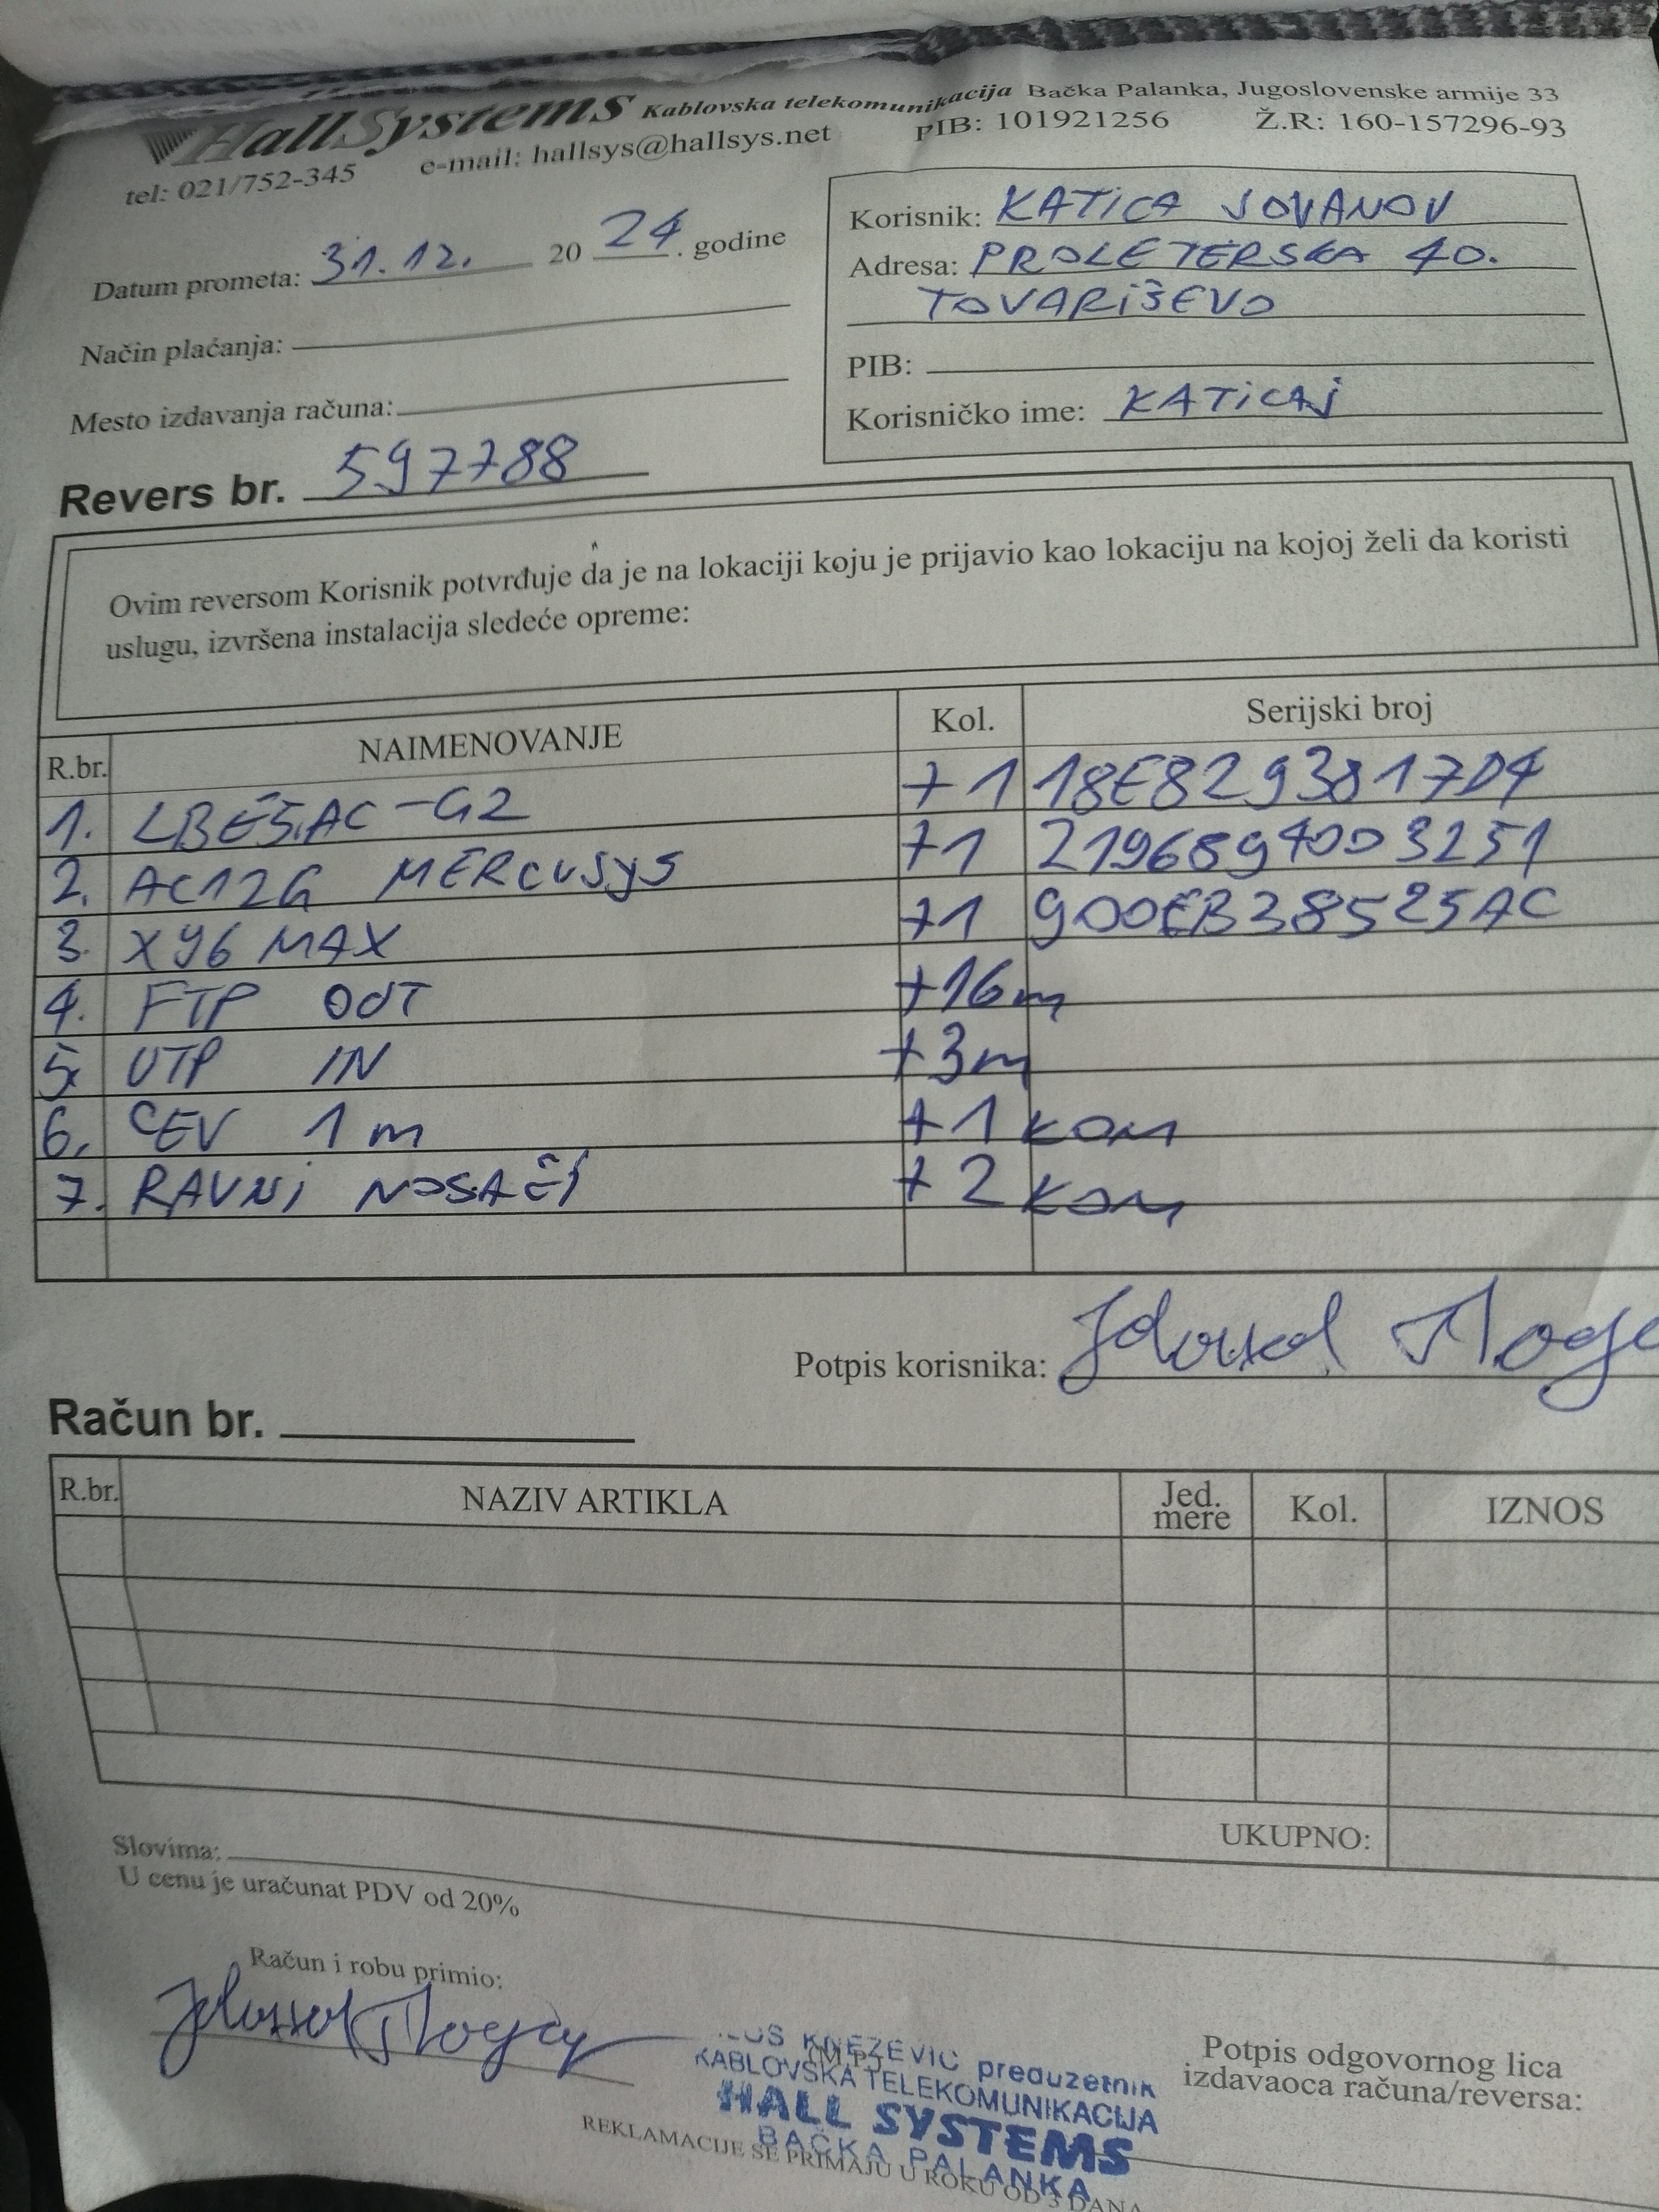 HallSystems Kablovska telekomunikacija Bačka Palanka, Jugoslovenske armije 33
tel: 021/752-345 e-mail: hallsys@hallsys.net PIB: 101921256 Ž.R: 160-157296-93
Datum prometa: 31.12. 20 24. godine
Način plaćanja:
Mesto izdavanja računa:
Korisnik: KATICA JOVANOV
Adresa: PROLETERSKA 40.
TOVARIŠEVO
PIB:
Korisničko ime: KATICAJ
Revers br. 597788
Ovim reversom Korisnik potvrđuje da je na lokaciji koju je prijavio kao lokaciju na kojoj želi da koristi
uslugu, izvršena instalacija sledeće opreme:
R.br. NAIMENOVANJE Kol. Serijski broj
1. LBE5AC-G2 +1 18E8293817D4
2. AC12G MERCUSYS +1 2196894003251
3. XY6 MAX +1 900EB38525AC
4. FTP OUT +16m
5. UTP IN +3m
6. CEV 1m +1 KOM
7. RAVNI NOSAČI +2 KOM
Potpis korisnika:
Račun br.
R.br. NAZIV ARTIKLA Jed. mere Kol. IZNOS
UKUPNO:
Slovima:
U cenu je uračunat PDV od 20%
Račun i robu primio:
KNEZEVIC preduzetnik
KABLOVSKA TELEKOMUNIKACIJA
HALL SYSTEMS
BAČKA PALANKA
Potpis odgovornog lica
izdavaoca računa/reversa:
REKLAMACIJE SE PRIMAJU U ROKU OD 3 DANA